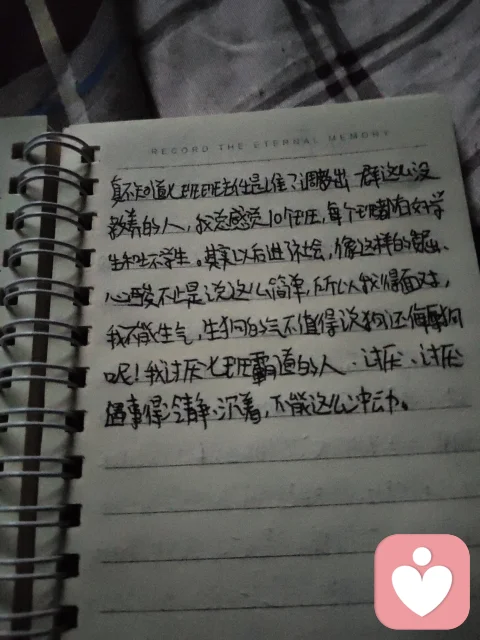 RECORD THE ETERNAL MEMORY
真不知道七班班主任是怎么调教出一群这么没
教养的人，我总感觉10个班，每个班都有好学
生和坏学生。其实以后进社会，像这样的
心酸不止是说这么简单，所以我得面对，
我不能生气，生狗的气不值得说狗还侮辱狗
呢！我讨厌七班霸道的人、讨厌、讨厌
遇事得冷静、沉着，不能这么冲动。